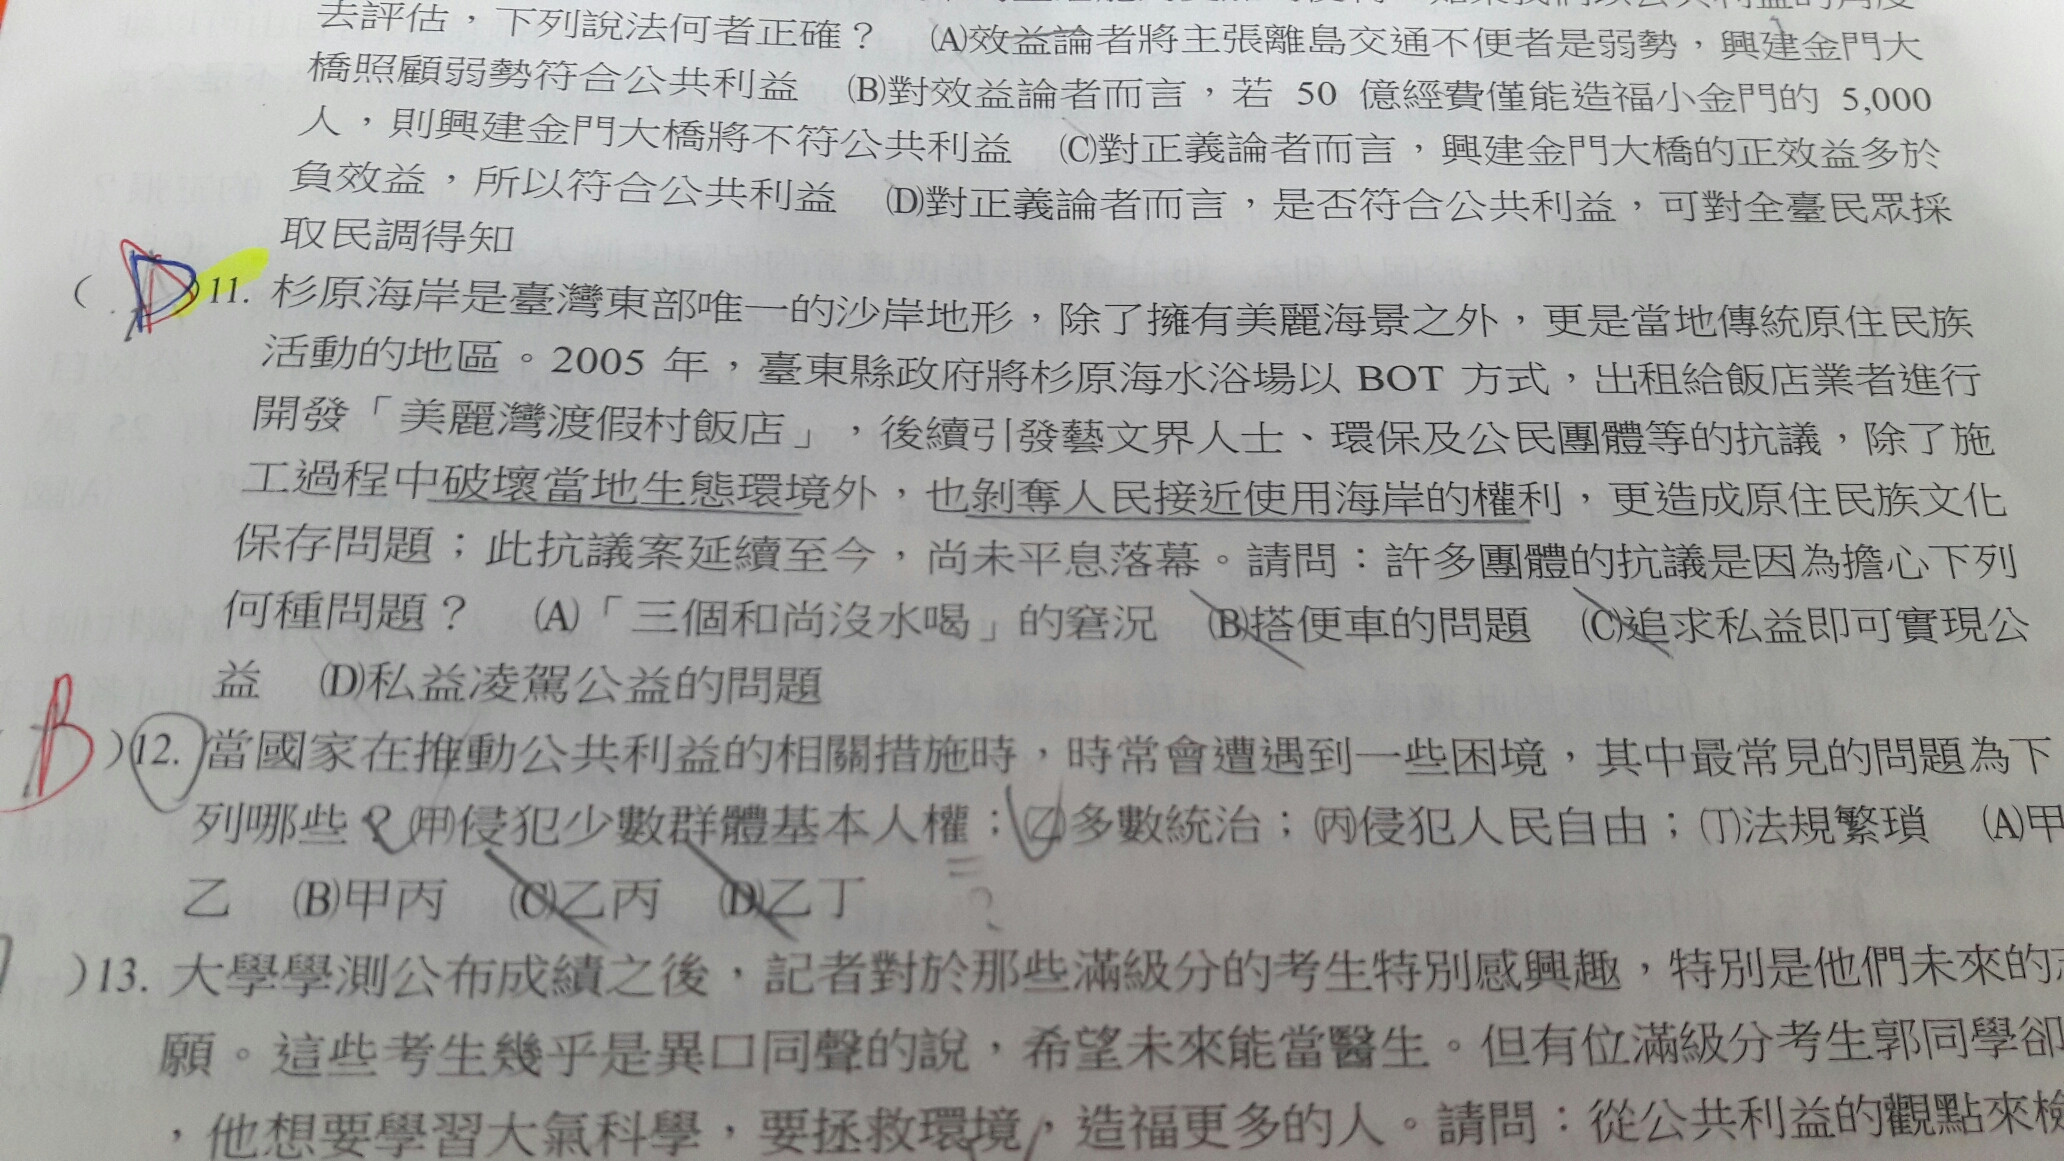 去評估，下列說法何者正確？ (A)效益論者將主張離島交通不便者是弱勢，興建金門大
橋照顧弱勢符合公共利益 (B)對效益論者而言，若 50 億經費僅能造福小金門的 5,000
人，則興建金門大橋將不符公共利益 (C)對正義論者而言，興建金門大橋的正效益多於
負效益，所以符合公共利益 (D)對正義論者而言，是否符合公共利益，可對全臺民眾採
取民調得知
( D )11. 杉原海岸是臺灣東部唯一的沙岸地形，除了擁有美麗海景之外，更是當地傳統原住民族
活動的地區。2005 年，臺東縣政府將杉原海水浴場以 BOT 方式，出租給飯店業者進行
開發「美麗灣渡假村飯店」，後續引發藝文界人士、環保及公民團體等的抗議，除了施
工過程中破壞當地生態環境外，也剝奪人民接近使用海岸的權利，更造成原住民族文化
保存問題；此抗議案延續至今，尚未平息落幕。請問：許多團體的抗議是因為擔心下列
何種問題？ (A)「三個和尚沒水喝」的窘況 (B)搭便車的問題 (C)追求私益即可實現公
益 (D)私益凌駕公益的問題
B )12. 當國家在推動公共利益的相關措施時，時常會遭遇到一些困境，其中最常見的問題為下
列哪些？(甲)侵犯少數群體基本人權；(乙)多數統治；(丙)侵犯人民自由；(丁)法規繁瑣 (A)甲
乙 (B)甲丙 (C)乙丙 (D)乙丁 =?
)13. 大學學測公布成績之後，記者對於那些滿級分的考生特別感興趣，特別是他們未來的
願。這些考生幾乎是異口同聲的說，希望未來能當醫生。但有位滿級分考生郭同學卻
，他想要學習大氣科學，要拯救環境，造福更多的人。請問：從公共利益的觀點來檢